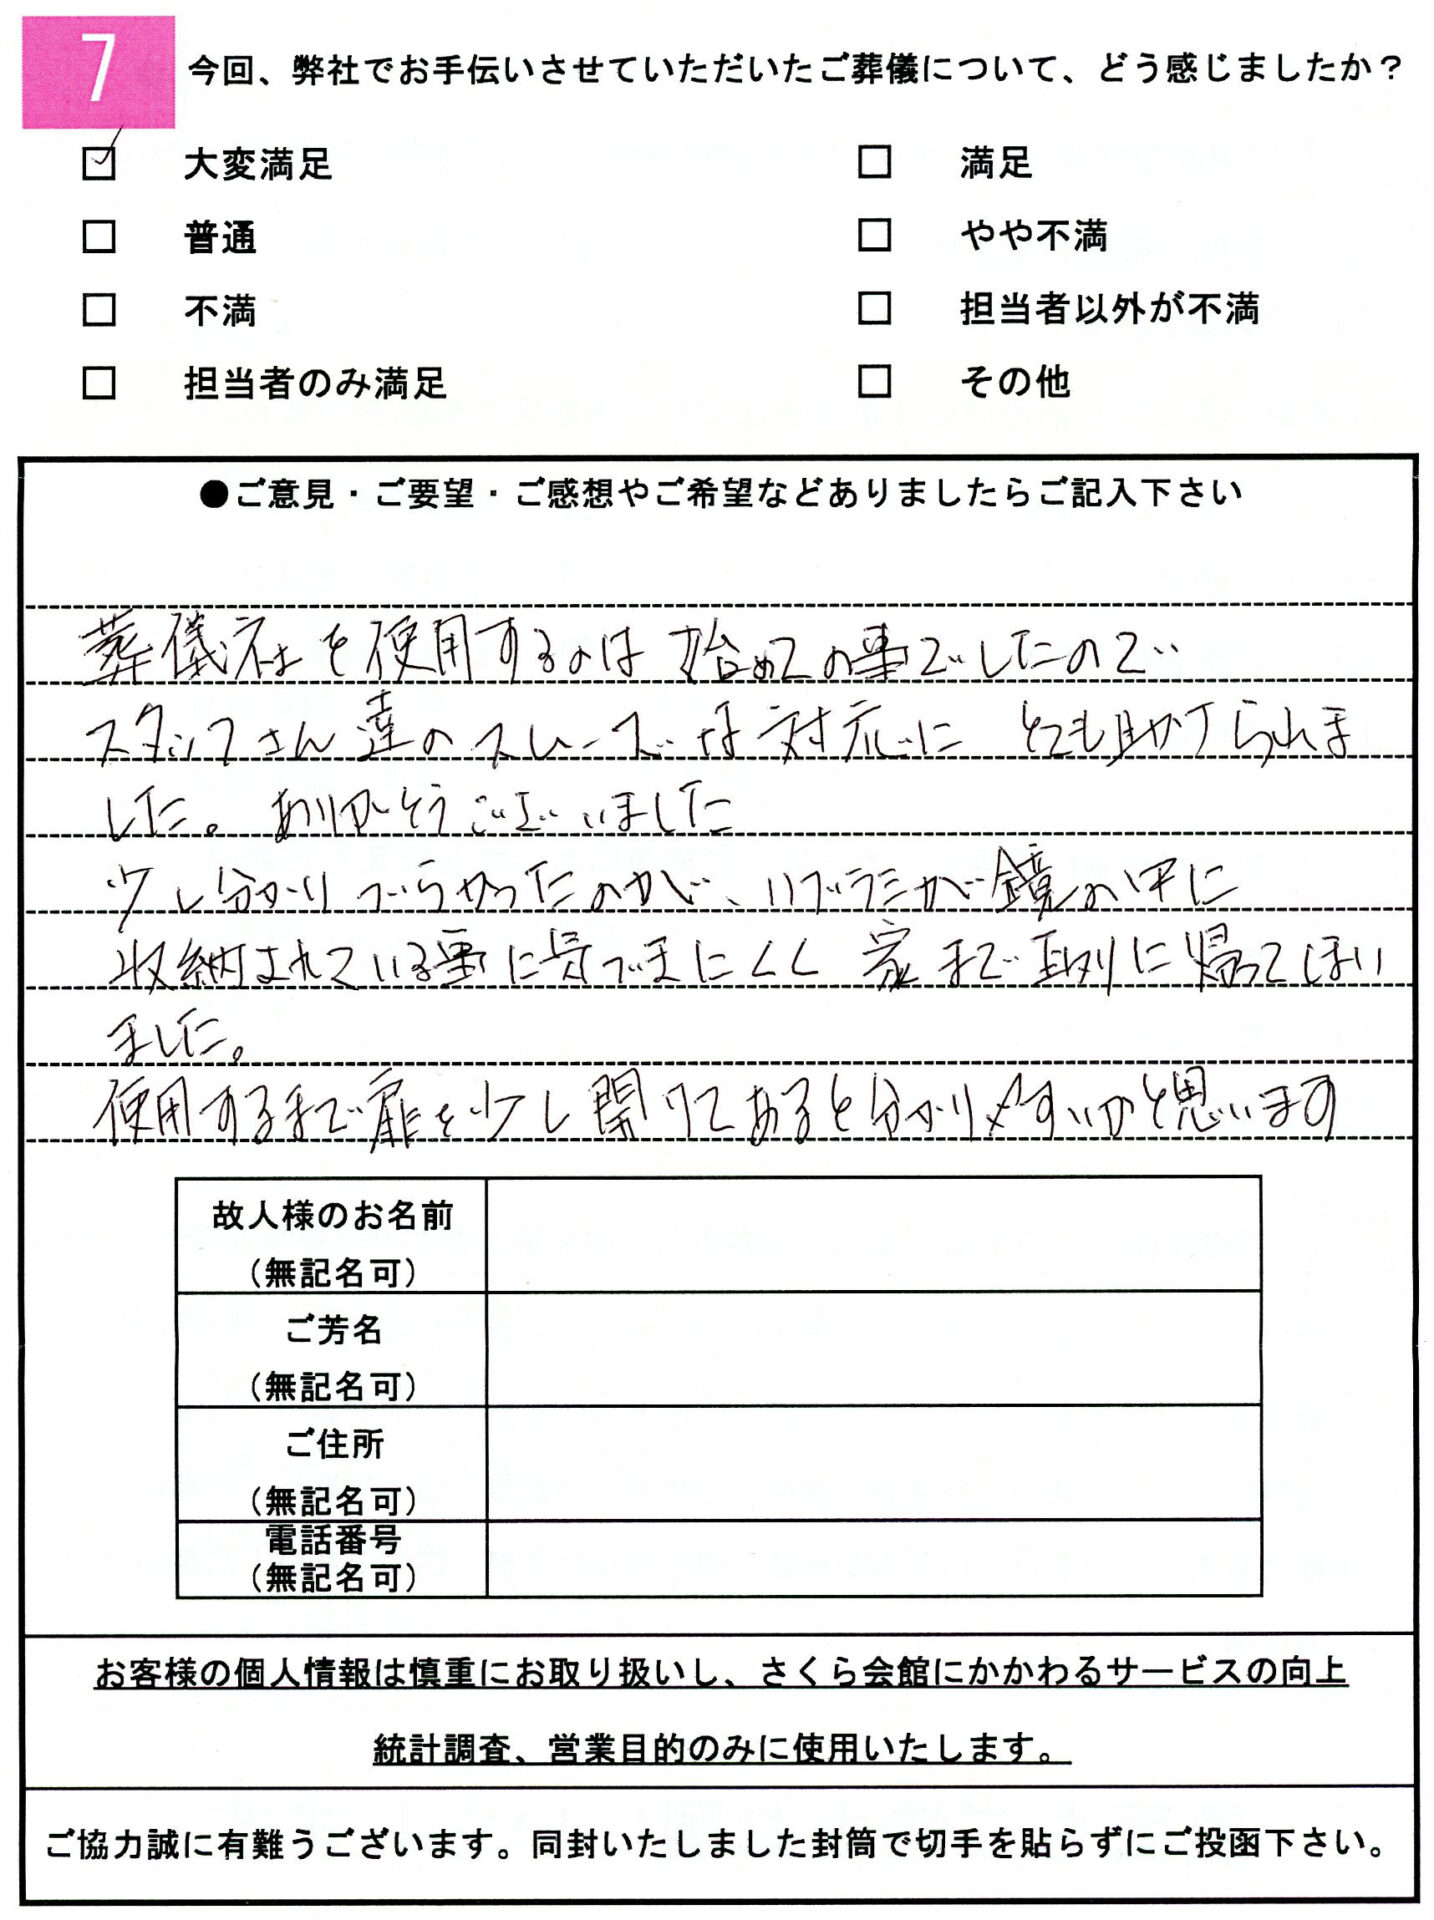 7
今回、弊社でお手伝いさせていただいたご葬儀について、どう感じましたか？
大変満足
満足
普通
やや不満
不満
担当者以外が不満
担当者のみ満足
その他
●ご意見・ご要望・ご感想やご希望などありましたらご記入下さい
葬儀社を使用するのは始めての事でしたので
スタッフさん達のスムーズな対応にとても助けられま
した。ありがとうございました
少し分かりづらかったのが、ハブラシが鏡の中に
収納されている事に気づきにくく家まで取りに帰ってしまい
ました。
使用するまで扉を少し開けてあると分かりやすいかと思います
故人様のお名前
（無記名可）
ご芳名
（無記名可）
ご住所
（無記名可）
電話番号
（無記名可）
お客様の個人情報は慎重にお取り扱いし、さくら会館にかかわるサービスの向上
統計調査、営業目的のみに使用いたします。
ご協力誠に有難うございます。同封いたしました封筒で切手を貼らずにご投函下さい。